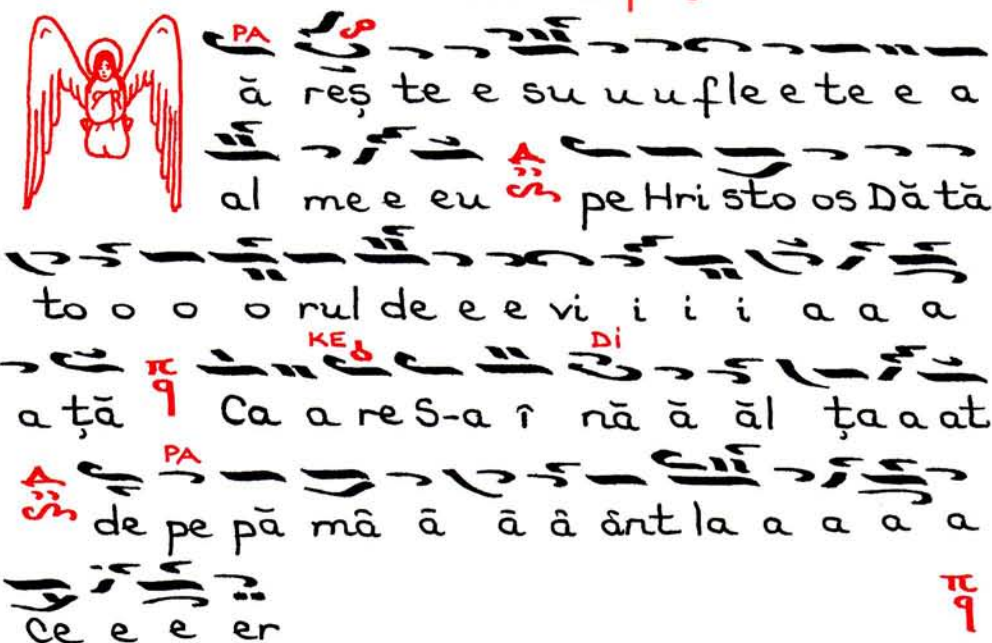 PA
ă reș te e su u u fle e te e a
al me e eu pe Hri sto os Dă tă
to o o o rul de e e vi i i i a a a
KE Di
a ță π q Ca a re S-a î nă ă ăl ța a at
PA
de pe pă mâ â â â ânt la a a a a
π q
ce e e er